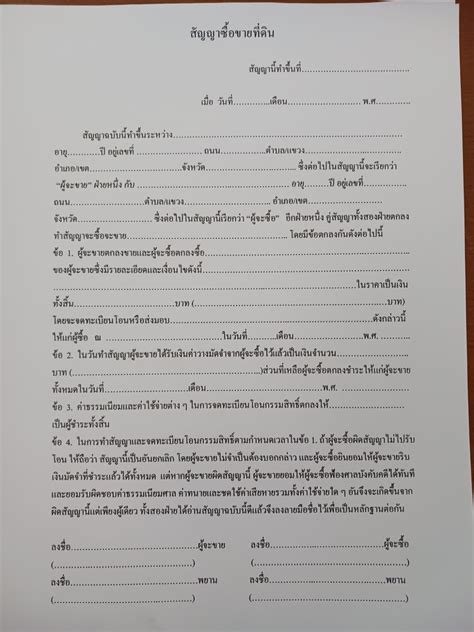 สัญญาซื้อขายที่ดิน
สัญญานี้ทำขึ้นที่..........................................
เมื่อ วันที่..............เดือน............................ พ.ศ.............
สัญญาฉบับนี้ทำขึ้นระหว่าง..........................................................................
อายุ..........ปี อยู่เลขที่ ........................ ถนน..............ตำบล/แขวง..........................
อำเภอ/เขต..........................จังหวัด.............................. ซึ่งต่อไปในสัญญานี้จะเรียกว่า
“ผู้จะขาย” ฝ่ายหนึ่ง กับ ........................................................ อายุ..........ปี อยู่เลขที่............
ถนน..............................ตำบล/แขวง.............................. อำเภอ/เขต..........................
จังหวัด.......................... ซึ่งต่อไปในสัญญานี้เรียกว่า “ผู้จะซื้อ” อีกฝ่ายหนึ่ง คู่สัญญาทั้งสองฝ่ายตกลง
ทำสัญญาจะซื้อจะขาย.......................................................... โดยมีข้อตกลงกันดังต่อไปนี้
ข้อ 1. ผู้จะขายตกลงขายและผู้จะซื้อตกลงซื้อ......................................................
ของผู้จะขายซึ่งมีรายละเอียดและเงื่อนไขดังนี้......................................................
..........................................................................................ในราคาเป็นเงิน
ทั้งสิ้น..............................บาท (......................................................บาท)
โดยจะจดทะเบียนโอนหรือส่งมอบ......................................................ดังกล่าวนี้
ให้แก่ผู้ซื้อ ณ ..........................................ในวันที่..........เดือน.................... พ.ศ. ............
ข้อ 2. ในวันทำสัญญาผู้จะขายได้รับเงินค่าวางมัดจำจากผู้จะซื้อไว้แล้วเป็นเงินจำนวน....................
บาท (..........................................)ส่วนที่เหลือผู้จะซื้อตกลงชำระให้แก่ผู้จะขาย
ทั้งหมดในวันที่....................เดือน..........................................พ.ศ. ....................
ข้อ 3. ค่าธรรมเนียมและค่าใช้จ่ายต่าง ๆ ในการจดทะเบียนโอนกรรมสิทธิ์ตกลงให้....................
เป็นผู้ชำระทั้งสิ้น
ข้อ 4. ในการทำสัญญาและจดทะเบียนโอนกรรมสิทธิ์ตามกำหนดเวลาในข้อ 1. ถ้าผู้จะซื้อผิดสัญญาไม่ไปรับ
โอน ให้ถือว่า สัญญานี้เป็นอันยกเลิก โดยผู้จะขายไม่จำเป็นต้องบอกกล่าว และผู้จะซื้อยินยอมให้ผู้จะขายริบ
เงินมัดจำที่ชำระแล้วได้ทั้งหมด แต่หากผู้จะขายผิดสัญญานี้ ผู้จะขายยอมให้ผู้จะซื้อฟ้องศาลบังคับคดีได้ทันที
และยอมรับผิดชอบค่าธรรมเนียมศาล ค่าทนายและชดใช้ค่าเสียหายรวมทั้งค่าใช้จ่ายใด ๆ อันจึงจะเกิดขึ้นจาก
ผิดสัญญานี้แต่เพียงผู้เดียว ทั้งสองฝ่ายได้อ่านสัญญาฉบับนี้ดีแล้วจึงลงลายมือชื่อไว้เพื่อเป็นหลักฐานต่อกัน
ลงชื่อ..............................ผู้จะขาย ลงชื่อ..............................ผู้จะซื้อ
(........................................) (........................................)
ลงชื่อ..............................พยาน ลงชื่อ..............................พยาน
(........................................) (........................................)